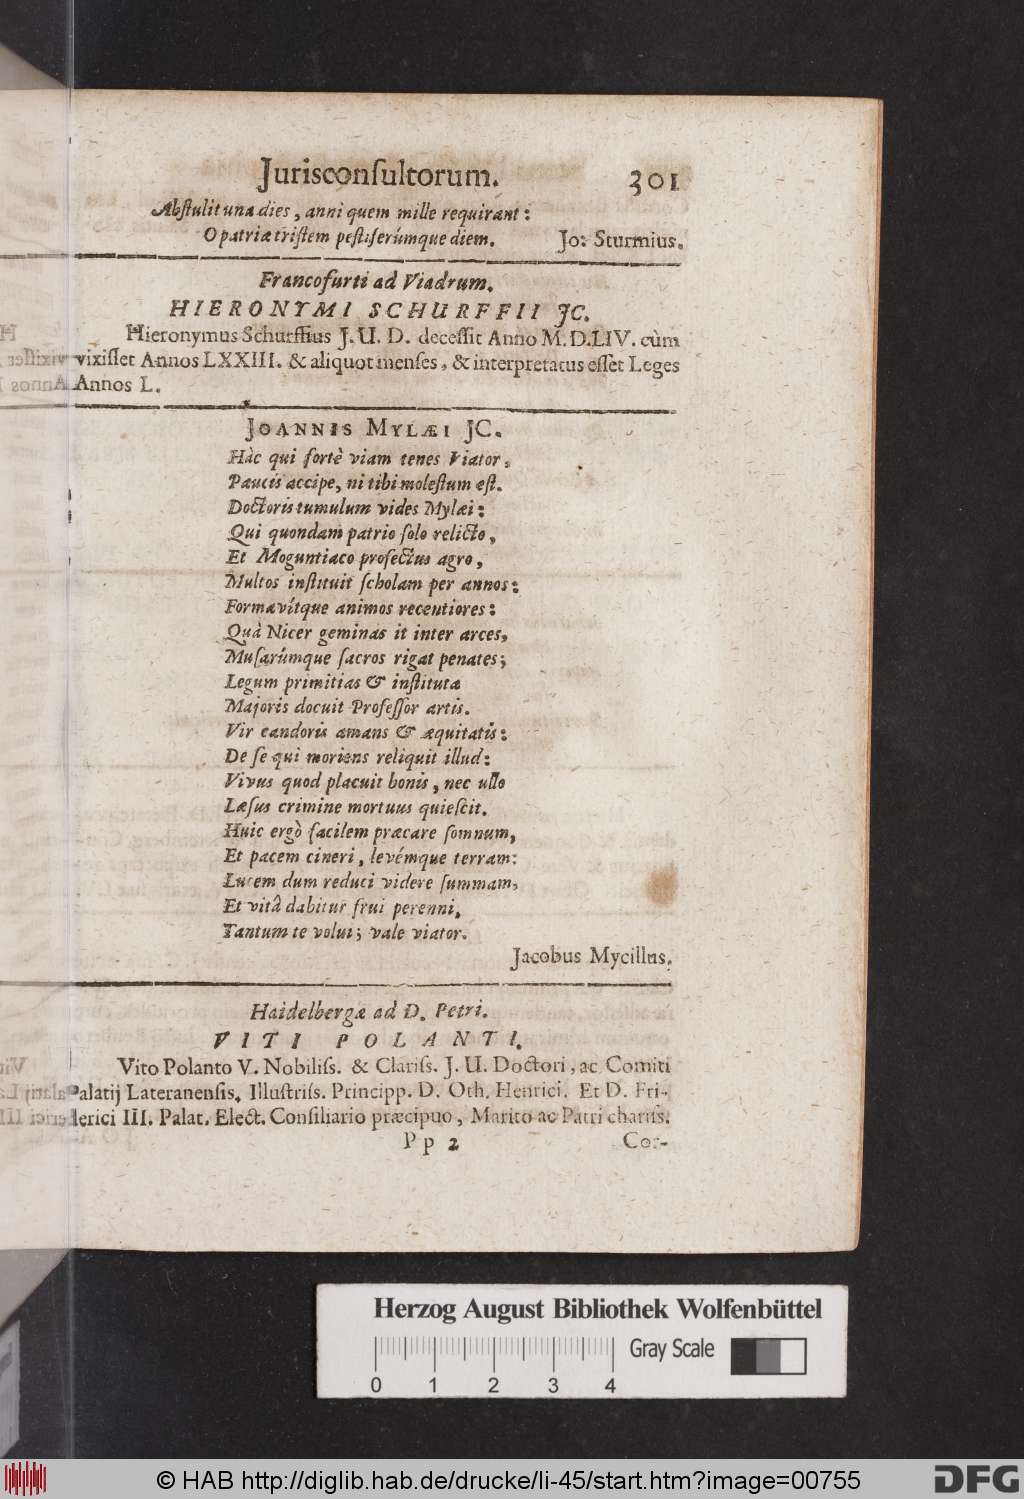 Jurisconſultorum. 301
Abſtulit una dies, anni quem mille requirant:
O patriæ triſtem peſtiferúmque diem. Jo: Sturmius.
Francofurti ad Viadrum.
HIERONYMI SCHURFFII JC.
Hieronymus Schurffius J. U. D. deceſſit Anno M. D. LIV. cùm
vixiſſet Annos LXXIII. & aliquot menſes, & interpretatus eſſet Leges
Annos L.
JOANNIS MYLÆI JC.
Hàc qui fortè viam tenes Viator,
Paucis accipe, ni tibi moleſtum eſt.
Doctoris tumulum vides Mylæi:
Qui quondam patrio ſolo relicto,
Et Moguntiaco profectus agro,
Multos inſtituit ſcholam per annos:
Formavítque animos recentiores:
Quà Nicer geminas it inter arces,
Muſarúmque ſacros rigat penates;
Legum primitias & inſtituta
Majoris docuit Profeſſor artis.
Vir candoris amans & æquitatis:
De ſe qui moriens reliquit illud:
Vivus quod placuit bonis, nec ullo
Læſus crimine mortuus quieſcit.
Huic ergò facilem præcare ſomnum,
Et pacem cineri, levémque terram:
Lucem dum reduci videre ſummam,
Et vitâ dabitur frui perenni,
Tantum te volui; vale viator.
Jacobus Mycillus.
Haidelbergæ ad D. Petri.
VITI POLANTI.
Vito Polanto V. Nobiliſſ. & Clariſſ. J. U. Doctori, ac Comiti
Palatij Lateranenſis, Illuſtriſſ. Principp. D. Oth. Henrici. Et D. Fri-
derici III. Palat. Elect. Conſiliario præcipuo, Marito ac Patri chariſſ.
Pp 2 Cor-
Herzog August Bibliothek Wolfenbüttel
Gray Scale
0 1 2 3 4
© HAB http://diglib.hab.de/drucke/li-45/start.htm?image=00755 DFG